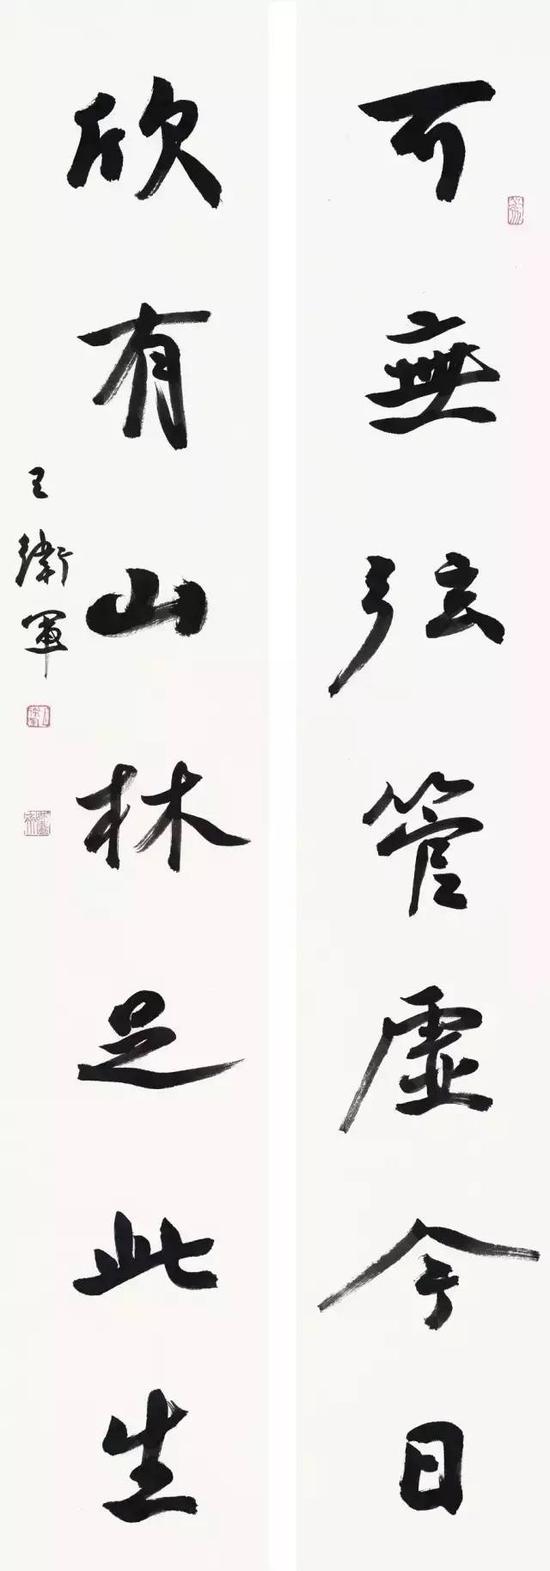 可無弦管虛今日
欣有山林足此生
王衛軍